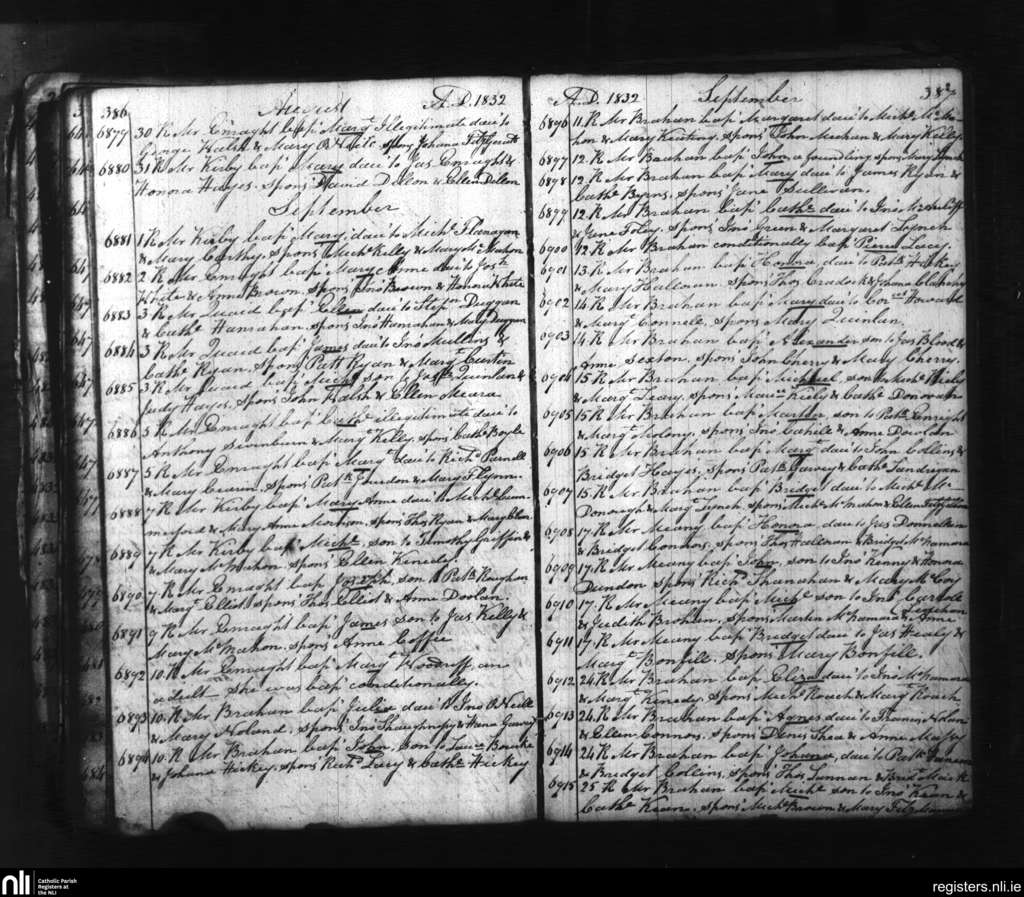 386
August A.D. 1832
6879 30 R. Mr. Enraght bapd. Margt. Illegitimate daur. to
George Walsh & Mary spons Johana Fitzgerald
6880 31 R. Mr. Kirby bapd. Mary daur. to Jas. Enraght &
Honora Hayes. Spons David Dillon & Ellen Dillon
September
6881 1 R. Mr. Kirby bapd. Mary, daur. to Michl. Flanagan
& Mary Carthy. Spons Michl. Kelly & Mary McMahon
6882 2 R. Mr. Enraght bapd. Mary Anne daur. to Josh.
White & Anne Brown. Spons Jno. Brown & Honora White
6883 3 R. Mr. Quaid bapd. Ellen daur. to Stepn. Duggan
& Cathe. Hanrahan, spons Jno. Hanrahan & Mary Duggan
6884 3 R. Mr. Quaid bapd. James daur. to Jno. Mullins &
Cathe. Ryan. Spons Patt Ryan & Margt. Curtin
6885 3 R. Mr. Quaid bapd. Michl. son to Josh. Quinlan &
Judy Hayes. Spons John Walsh & Ellen Meara
6886 3 R. Mr. Enraght bapd. Cathe. illegitimate daur. to
Anthony Swinburn & Margt. Kelly. spons Cathe. Boyle
6887 5 R. Mr. Enraght bapd. Margt. daur. to Richd. Parnell
& Mary spons Patk. & Mary Flynn.
6888 7 R. Mr. Kirby bapd. Mary Anne daur. to Michl.
& Mary Anne spons Thos. Ryan & Mary
6889 7 R. Mr. Kirby bapd. Michl. son to Timothy Griffin &
Mary McMahon. Spons Ellen Kenedy
6890 7 R. Mr. Enraght bapd. Joseph son to Patk. Vaughan
& Margt. Elliot & spons Thos. Elliot & Anne Doolan.
6891 9 R. Mr. Enraght bapd. James son to Jas. Kelly &
Mary McMahon. Spons Anne Coffee
6892 10. R. Mr. Enraght bapd. Margt. Woodruff, an
adult she was bapd. conditionally.
6893 10. R. Mr. Brahan bapd. Julia daur. to Jno. O'Neill
& Mary Noland. Spons Jno. Shaughnessy & Garvey
6894 10. R. Mr. Brahan bapd. John, son to Laurce. Bourke
& Johana Hickey. spons Richd. Lucy & Cathe. Hickey
A.D. 1832 September 387
6896 11. R. Mr. Brahan bapd. Margaret daur. to Michl. McMa-
hon & Mary Keating. Spons John Meehan & Mary Kelly
6897 12. R. Mr. Brahan bapd. John a foundling spons Mary Lynch
6898 12. R. Mr. Brahan bapd. Mary daur. to James Ryan &
Cathe. Byrns. Spons Jane Sullivan.
6899 12. R. Mr. Brahan bapd. Cathe. daur. to Jno. McAuliffe
& Jane Foley. Spons Jno. Green & Margaret Lynch
6900 12. R. Mr. Brahan conditionally bapd. Pierce Lacy.
6901 13. R. Mr. Brahan bapd. Honora, daur. to Patk. Hickey
& Mary Hallinan. Spons Thos. Cradock & Johana Clahesey
6902 14. R. Mr. Brahan bapd. Mary daur. to Cors. Howard
& Margt. Connell. Spons Mary Quinlan
6903 14. R. Mr. Brahan bapd. Alexander son to Jas. Blood &
Anne Sexton. spons John Cherry & Mary Cherry.
6904 15. R. Mr. Brahan bapd. Michael, son to Michl. Kiely
& Margt. Leary. Spons Kiely & Cathe. Donovan
6905 15. R. Mr. Brahan bapd. Martin, son to Patk. Enright
& Margt. Molony. Spons Jno. Cahill & Anne Doolan
6906 15. R. Mr. Brahan bapd. Margt. daur. to John Collins &
Bridget Hayes. Spons Patk. Garvey & Cathe. Landregan
6907 15. R. Mr. Brahan bapd. Bridget daur. to Michl. Mc-
Donough & Mary Lynch. Spons Michl. McMahon & Ellen
6908 17. R. Mr. Meany bapd. Honora, daur. to Jas. Donnellan
& Bridget Connors. spons Thos. Hallinan & Bridgt. McNamara
6909 17. R. Mr. Meany bapd. John, son to Jno. Kenny & Honora
Dundon spons Richd. Shanahan & Mary McCoy
6910 17. R. Mr. Meany bapd. Michl. son to Jno. Carroll
& Judith Brohan. Spons Martin McNamara & Anne Linehan
6911 17. R. Mr. Meany bapd. Bridget daur. to Jas. Healy &
Margt. Bonfill. Spons Mary Bonfill.
6912 24. R. Mr. Brahan bapd. Eliza daur. to Jno. McNamara
& Margt. Kenedy. Spons Michl. Roach & Mary Roach
6913 24. R. Mr. Brahan bapd. Agnes daur. to Thomas Nolan
& Ellen Connors. Spons Denis Shea & Anne Massy
6914 24 R. Mr. Brahan bapd. Johana, daur. to Patk.
& Bridget Collins. Spons Thos. Lannan &
6915 25 R. Mr. Brahan bapd. Michl. son to Jno. Kean &
Cathe. Kean. Spons Michl. Brown & Mary
nli Catholic Parish
Registers at
the NLI
registers.nli.ie